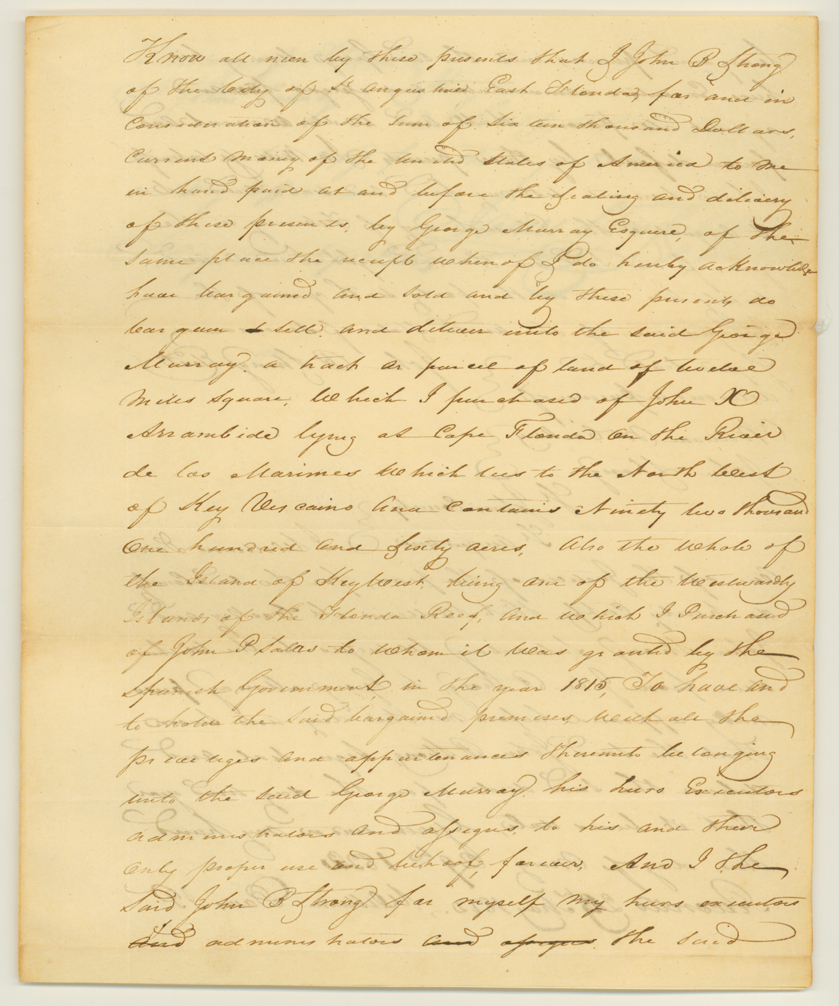 Know all men by these presents that I John B Strong
of the City of St Augustine East Florida, for and in
Consideration of the sum of Six teen thousand Dollars,
Current money of the United States of America to me
in hand paid at and before the sealing and delivery
of these presents, by George Murray Esquire, of the
same place the receipt whereof I do hereby acknowledge
have bargained and sold and by these presents do
bargain & sell and deliver unto the said George
Murray, a track or parcel of land of twelve
miles square, Which I purchased of John
Arrambide lying at Cape Florida On the River
de los Marimes which lies to the North West
of Key Viscaino And contains Ninety two thousand
One hundred and sixty acres, Also the whole of
the Island of Key West, being one of the Westwardly
Islands of the Florida Reef, and which I Purchased
of John P Salas to whom it was granted by the
Spanish Government in the year 1815, To have and
to hold the said bargained premises with all the
privileges and appurtenances thereunto belonging
unto the said George Murray his heirs Executors
administrators and assigns, to his and their
only proper use and behoof, forever, And I the
Said John B Strong for myself my heirs executors
and administrators and assigns the said